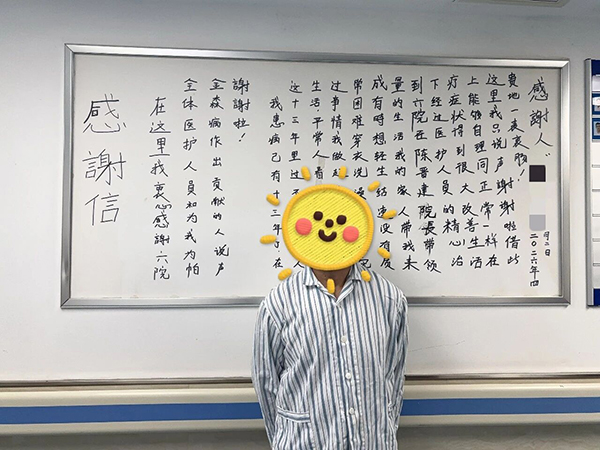 感謝信
在这里我衷心感謝六院
全体医护人員和为我为帕
金森病作出贡献的人说声
謝謝啦!
我患病已有十三年了在
这十三年里过 人
生活,平常人看
过事情我做起
常困难穿衣说
成有時想轻生结束 有质
量的生活我的家人带我来
到六院在陈 建院長帶领
下经过医护人員的精心治
疗症状得到很大改善生活
上能够自理同正常一样在
这里我只说声謝謝啦借此
貴地一表衷腸!
感謝人:
二〇二六年四
月二日